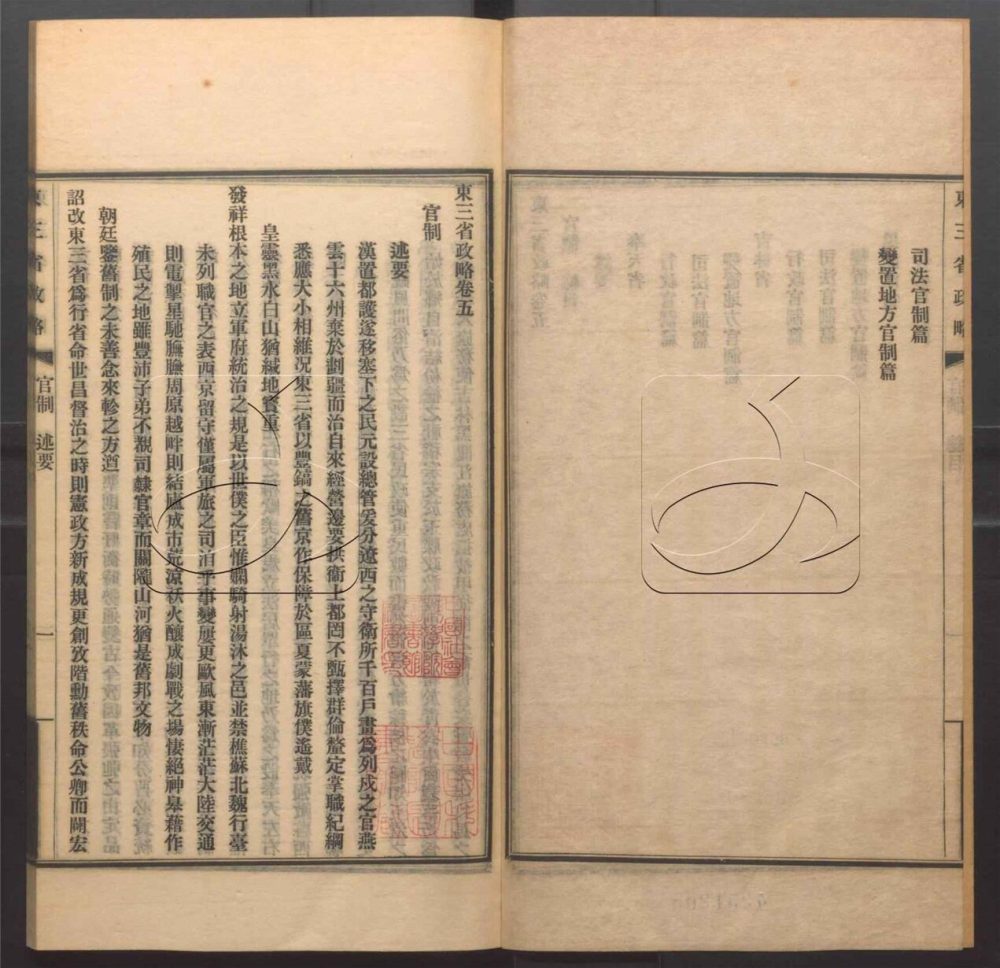 司法官制篇
變置地方官制篇
東三省政略卷五
官制
述要
漢置都護遂移塞下之民元設總管爰分遼西之守衛所千百戶畫爲列戍之官燕
雲十六州棄於劃疆而治自來經營邊要拱衛上都罔不甄擇群倫釐定掌職紀綱
悉應大小相維况東三省以豐鎬之舊京作保障於區夏蒙藩旗僕遙戴
皇靈黑水白山猶緘地寶重
發祥根本之地立軍府統治之規是以世僕之臣惟嫻騎射湯沐之邑並禁樵蘇北魏行臺
未列職官之表西京留守僅屬軍旅之司洎乎事變屢更歐風東漸茫茫大陸交通
則電掣星馳膴膴周原越畔則結廬成市荒涼祅火釀成劇戰之場悽絕神皋藉作
殖民之地雖豐沛子弟不覩司隸官章而關隴山河猶是舊邦文物
朝廷鑒舊制之未善念來軫之方遒
詔改東三省爲行省命世昌督治之時則憲政方新成規更創攷階勳舊秩命公卿而闢宏
官制 述要 一